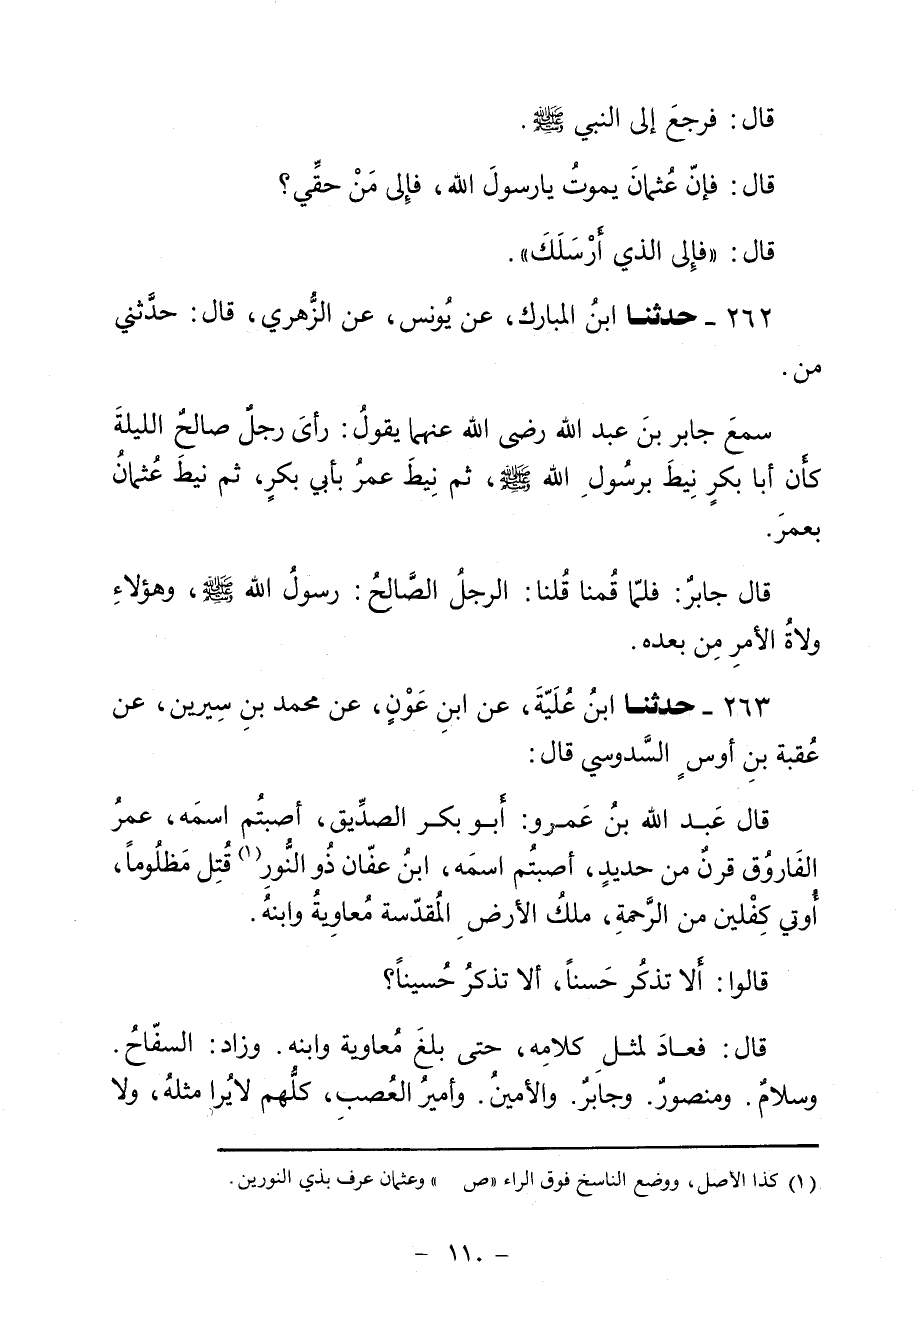 قال: فرجعَ إلى النبي ﷺ.
قال: فإنّ عُثمانَ يموتُ يارسولَ الله، فإلى مَنْ حقِّي؟
قال: «فإلى الذي أَرْسَلَكَ».
٢٦٢ ـ حدثنـا ابنُ المبارك، عن يُونس، عن الزُّهري، قال: حدَّثني
من.
سمعَ جابر بنَ عبد الله رضى الله عنهما يقولُ: رأىَ رجلٌ صالحٌ الليلةَ
كأَن أبا بكرٍ نِيطَ برسُولِ الله ﷺ، ثم نِيطَ عمرُ بأبي بكرٍ، ثم نيطَ عُثمانُ
بعمرَ.
قال جابرٌ: فلمّا قُمنا قُلنا: الرجلُ الصَّالحُ: رسولُ الله ﷺ، وهؤلاءِ
ولاةُ الأمرِ مِن بعده.
٢٦٣ ـ حدثنـا ابنُ عُلَيّةَ، عن ابنِ عَوْنٍ، عن محمد بنِ سِيرين، عن
عُقبة بنِ أوسٍ السَّدوسي قال:
قال عَبـد الله بنُ عَمـرو: أَبـو بكـر الصدِّيق، أصبتُم اسمَه، عمرُ
الفَاروُق قرنٌ من حديدٍ، أصبتُم اسمَه، ابنُ عفّان ذُو النُّورِ(١) قُتِل مَظلُوماً،
أُوتي كِفْلين من الرَّحمةِ، ملكُ الأرضِ المُقدّسة مُعاوِيةُ وابنهُ.
قالوا: أَلا تذكُر حَسناً، ألا تذكرُ حُسيناً؟
قال: فعـادَ لمثـلِ كلامِه، حتى بلغَ مُعاوية وابنه. وزاد: السفّاحُ.
وسلامٌ. ومنصورٌ. وجابرٌ. والأمينُ. وأميرُ العُصبِ، كلُّهم لايُرا مثلهُ، ولا
(١) كذا الأصل، ووضع الناسخ فوق الراء «ص » وعثمان عرف بذي النورين.
- ١١٠ -